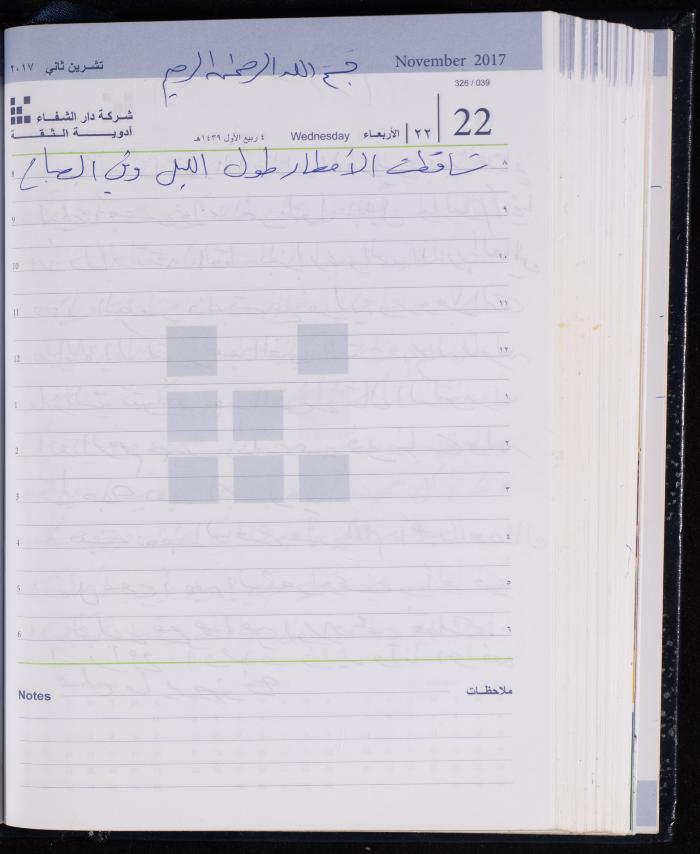 تشرين ثاني ٢٠١٧
بسم الله الرحمن الرحيم
November 2017
326 / 039
شركة دار الشفاء
أدويـة الـثـقـة
٤ ربيع الأول ١٤٣٩هـ Wednesday الأربعاء ٢٢ 22
8 تساقطت الأمطار طول الليل وفي الصباح ٨
9 ٩
10 ١٠
11 ١١
12 ١٢
1 ١
2 ٢
3 ٣
4 ٤
5 ٥
6 ٦
Notes ملاحظات